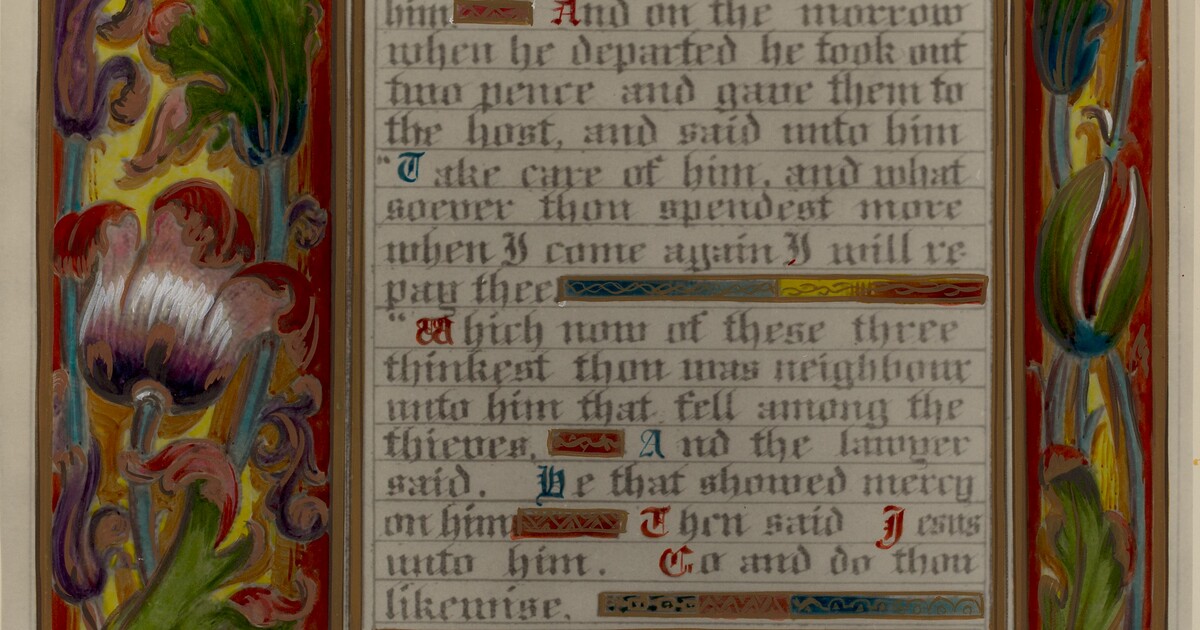 him And on the morrow
when he departed he took out
two pence and gave them to
the host, and said unto him
"Take care of him, and what
soever thou spendest more
when I come again I will re-
pay thee
"Which now of these three
thinkest thou was neighbour
unto him that fell among the
thieves. And the lawyer
said. He that showed mercy
on him Then said Jesus
unto him. Go and do thou
likewise.